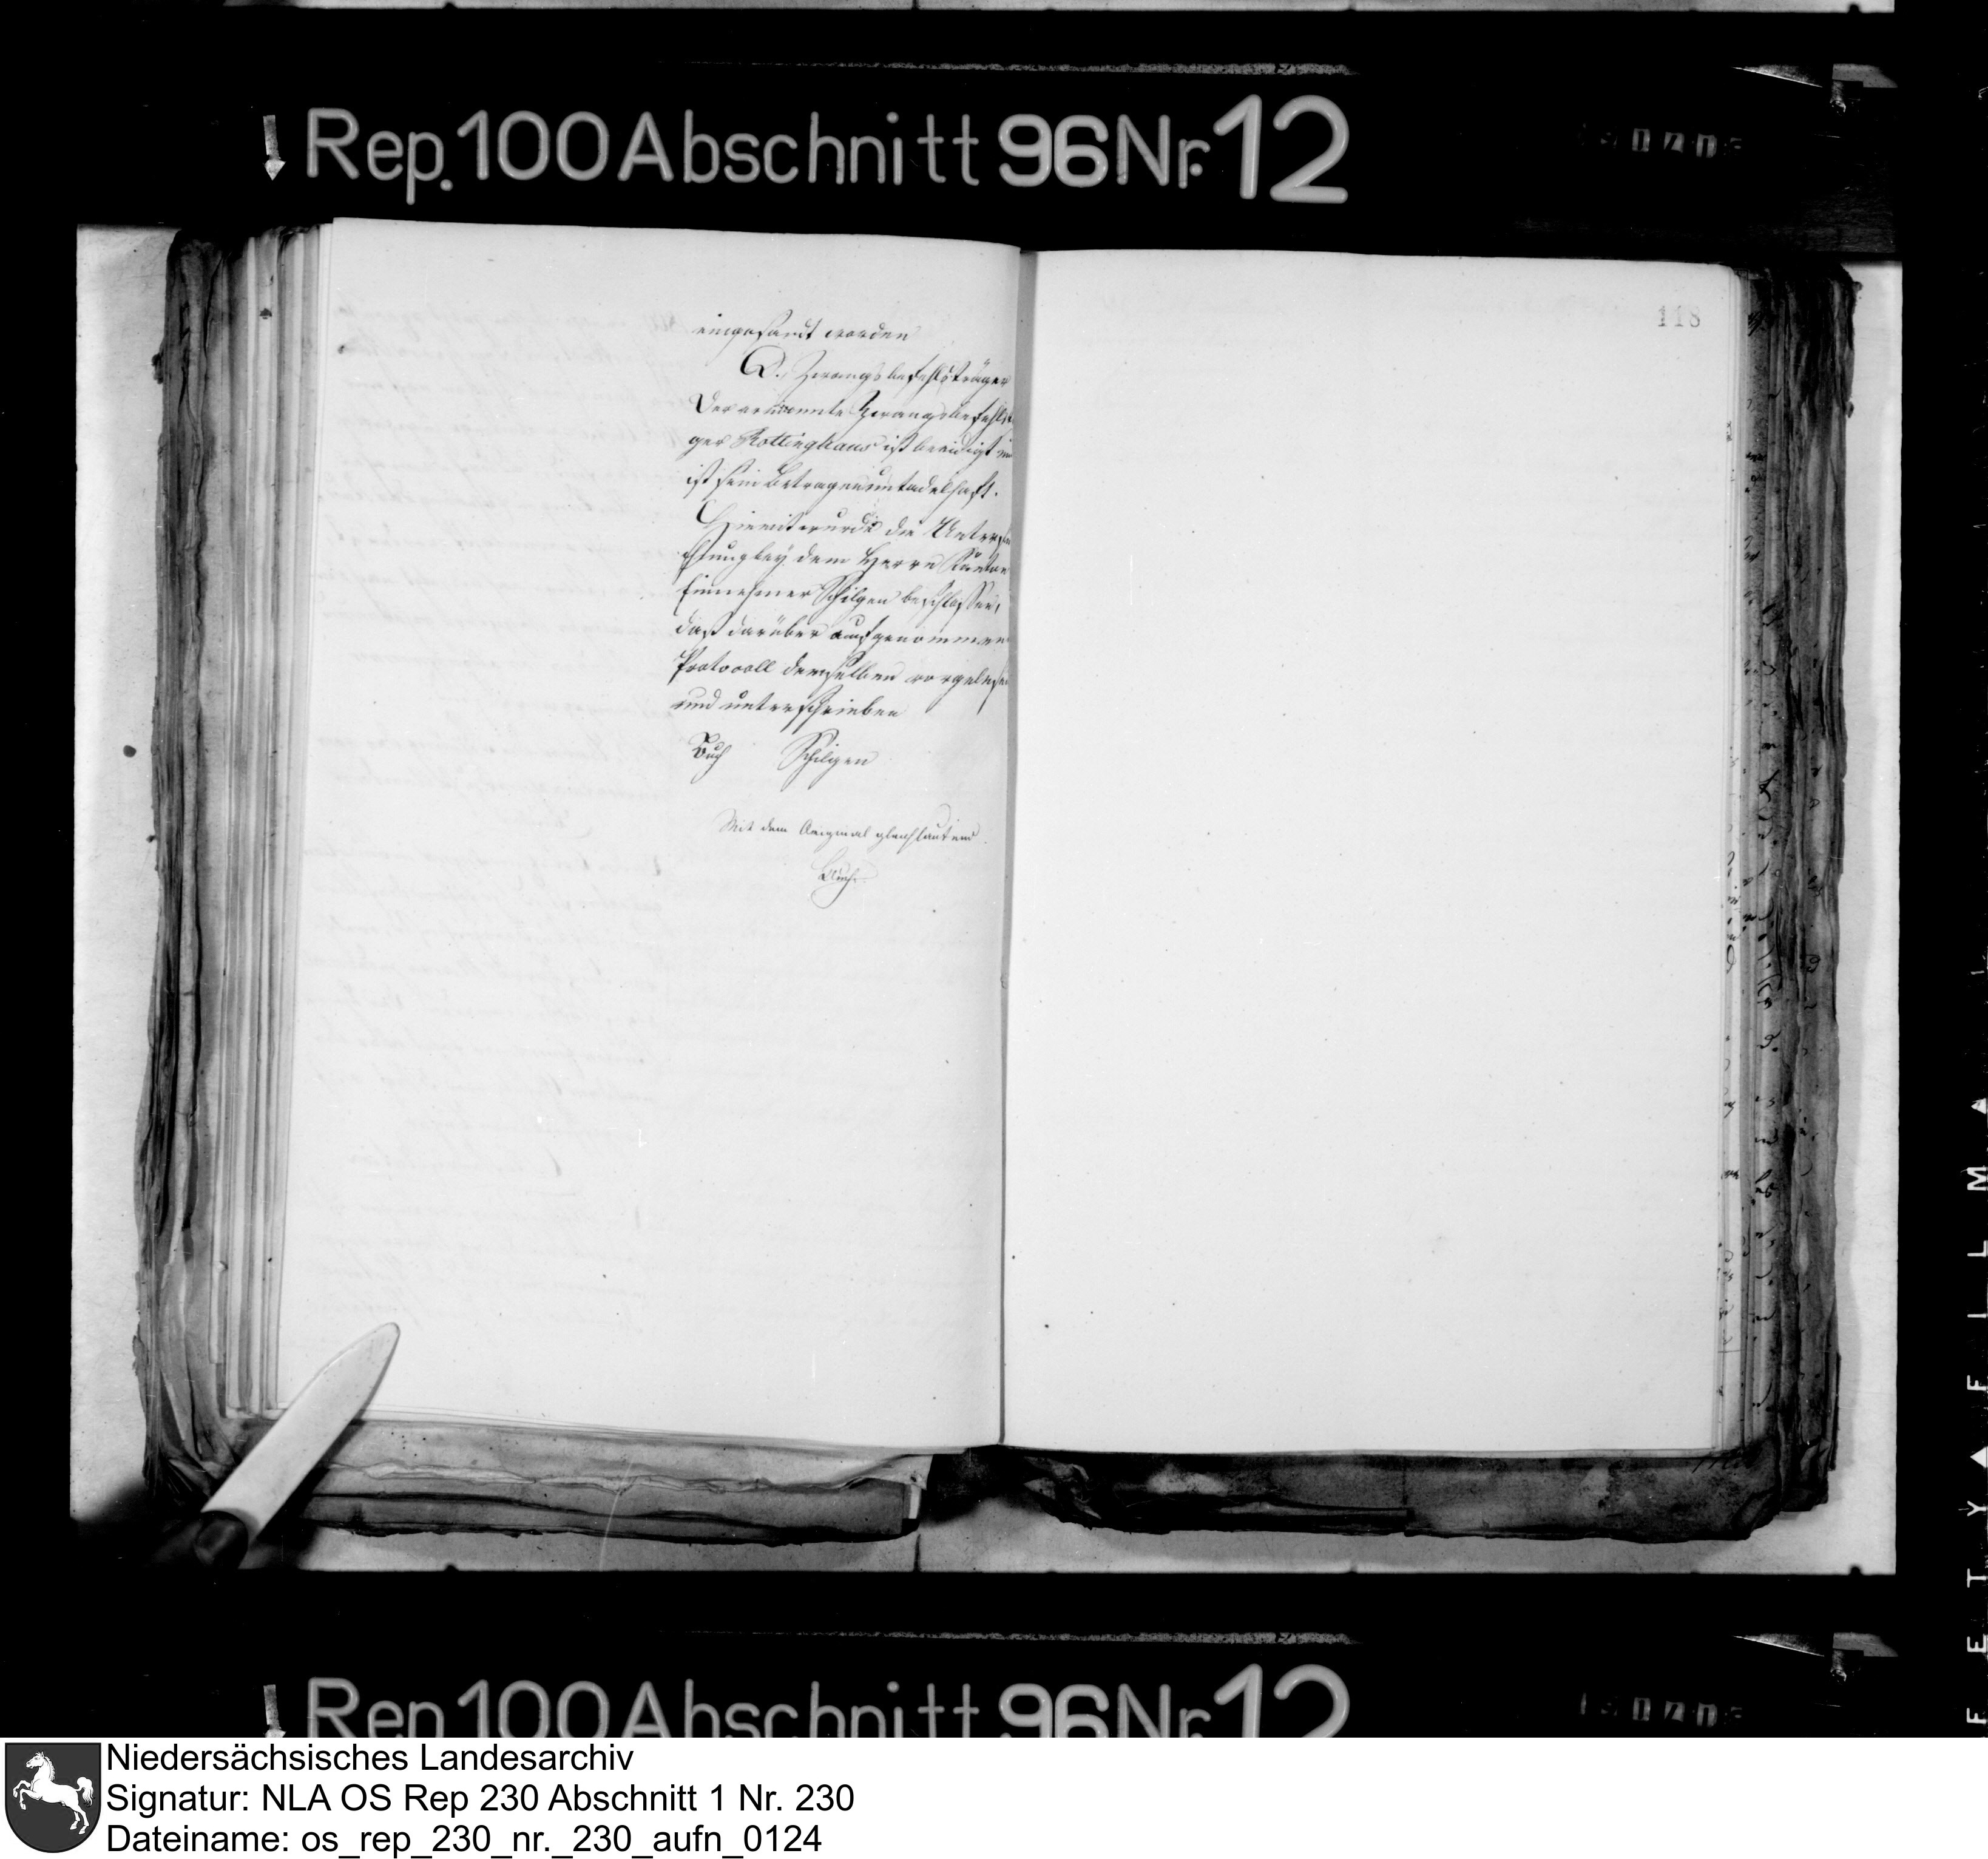 Rep. 100 Abschnitt 96 Nr. 12
eingesandt worden
Q. Zwangsbefehlsträger
Der ernannte Zwangsbefehlsträ
ger Rottinghaus ist beeidigt und
ist sein Betragen untadelhaft.
Hiemit wurde die Untersu
chung bey dem Herrn Kanton
Einnehmer Schilgen beschlossen,
das darüber aufgenommene
Protocoll demselben vorgelesen
und unterschrieben
Buch Schilgen
Mit dem Original gleichlautend
Buch
118
Rep. 100 Abschnitt 96 Nr. 12
SAFETY FILM
Niedersächsisches Landesarchiv
Signatur: NLA OS Rep 230 Abschnitt 1 Nr. 230
Dateiname: os_rep_230_nr._230_aufn_0124